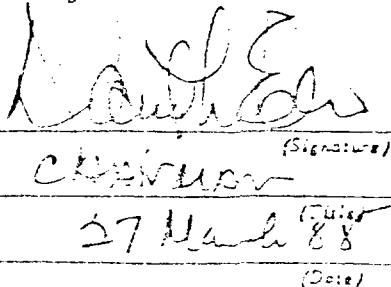 (Signature)
Chairman
(Title)
27 March 88
(Date)